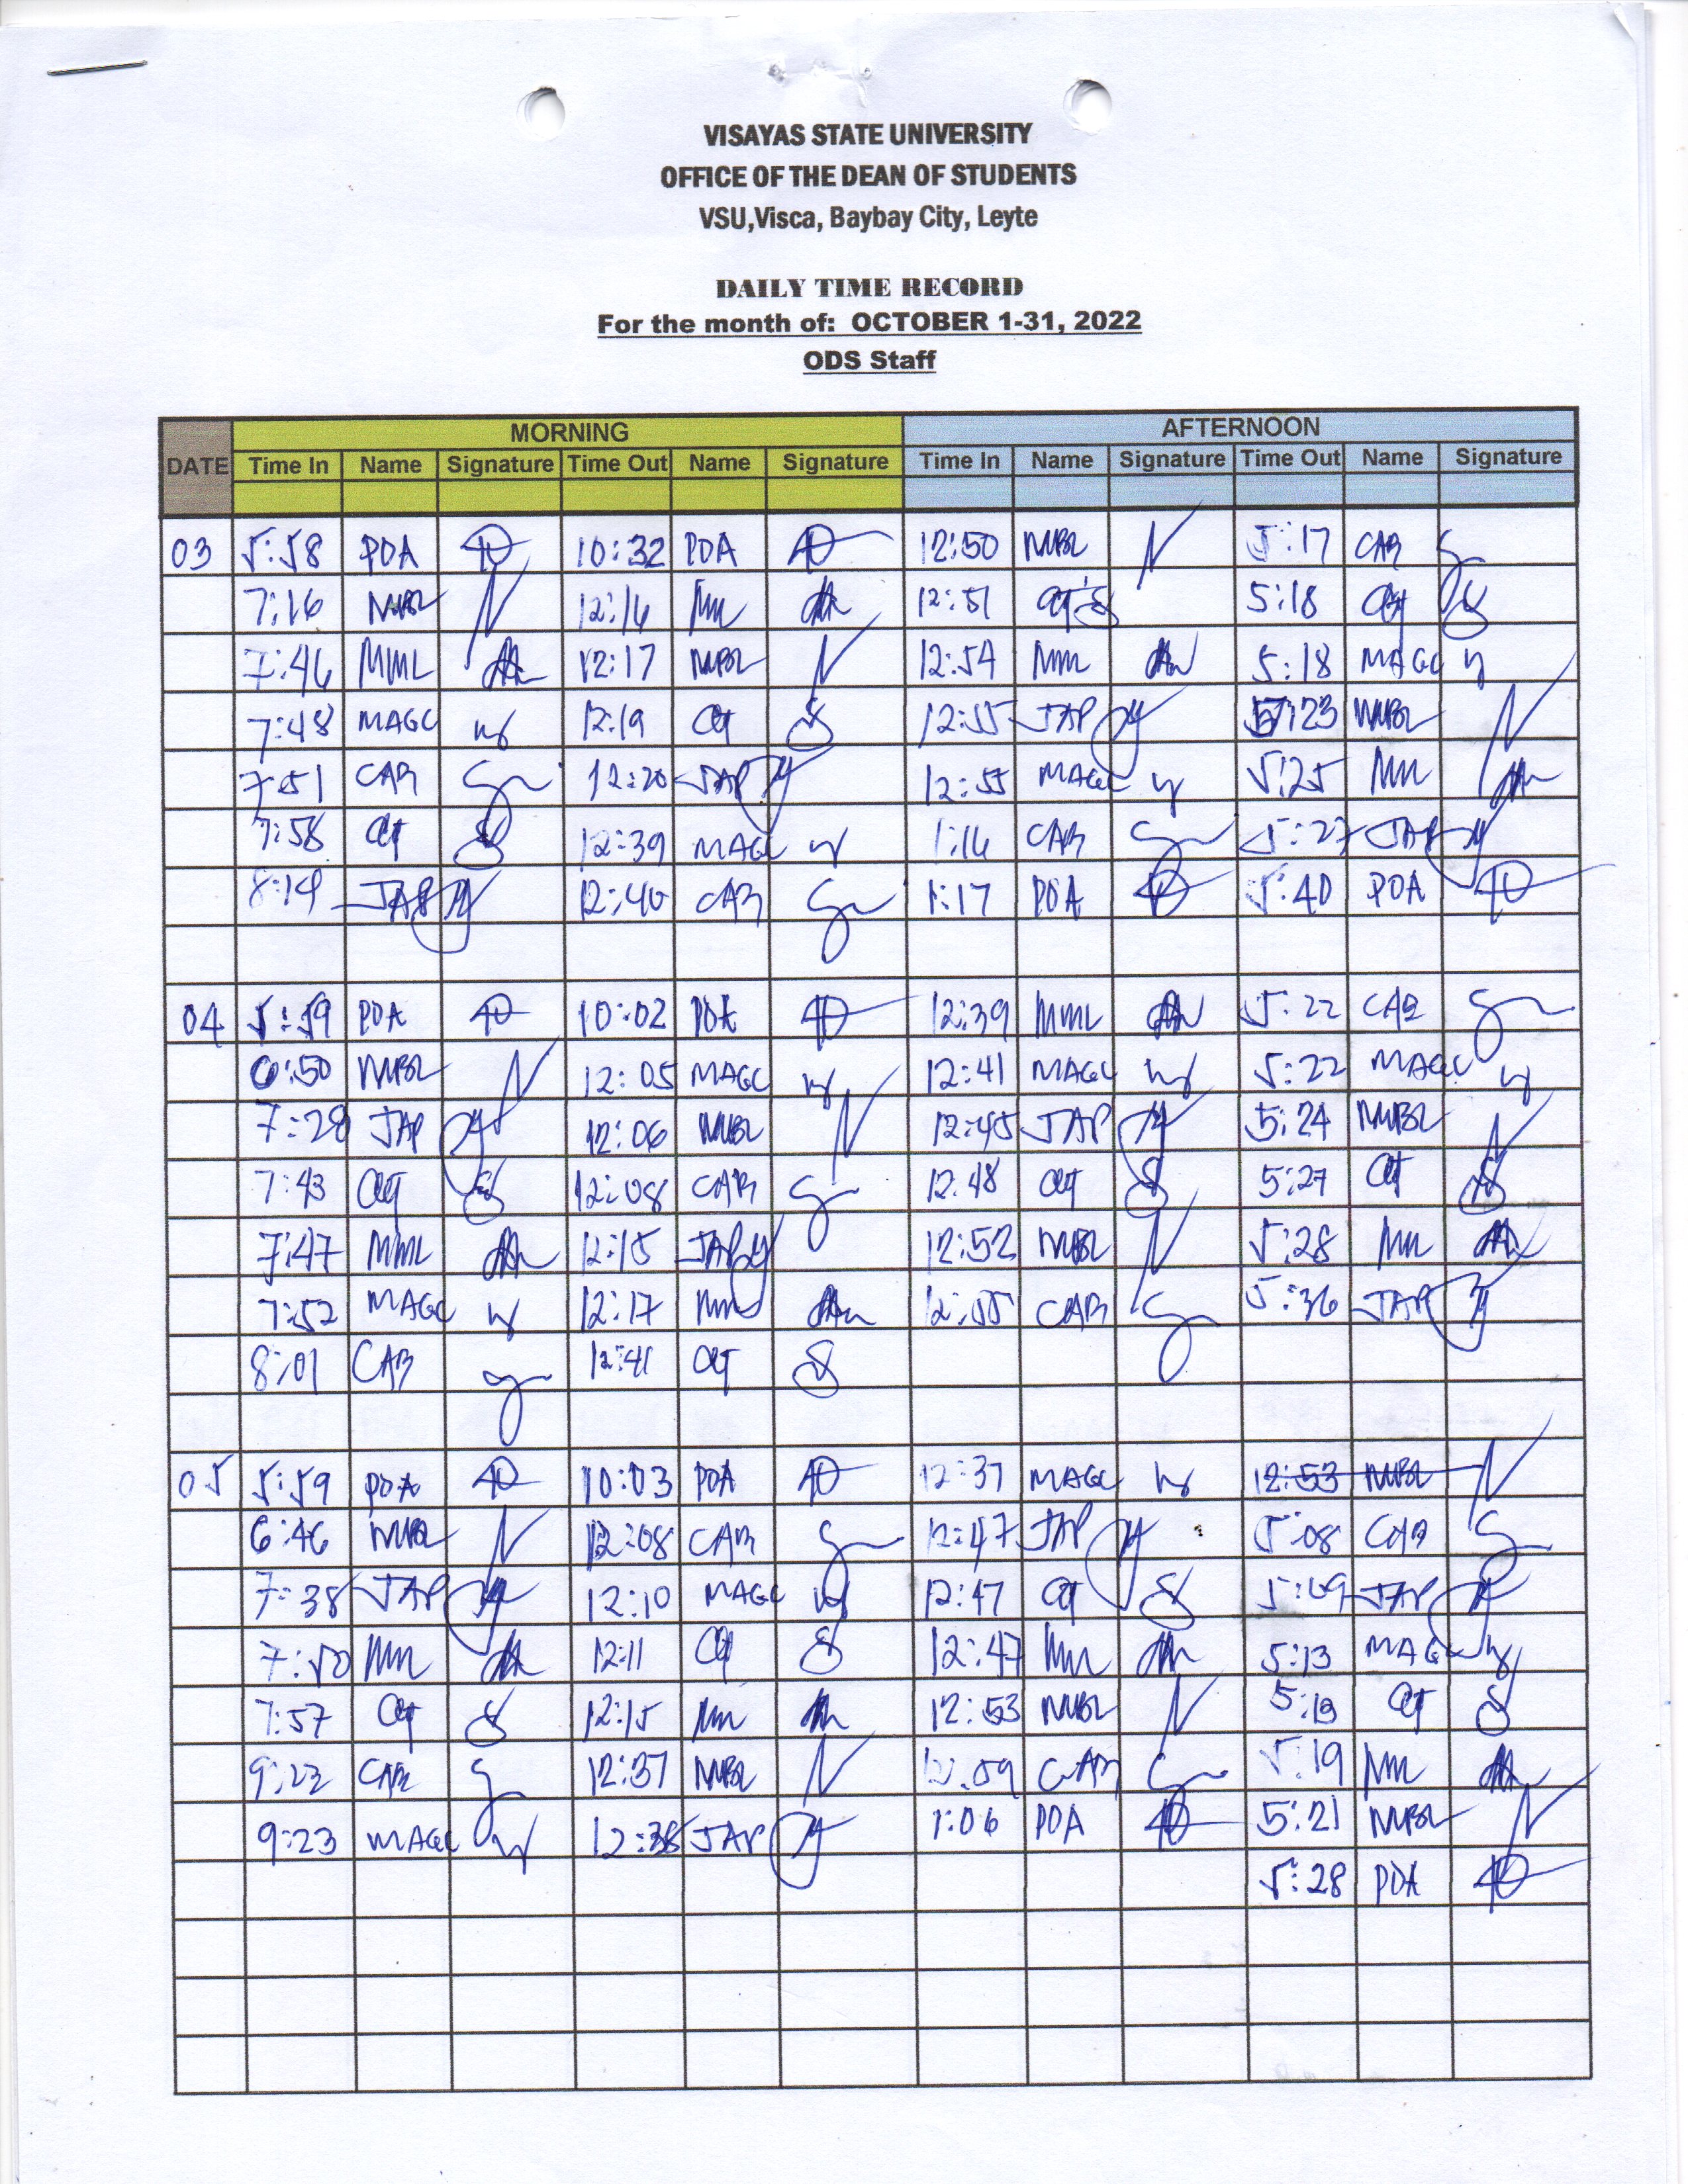 VISAYAS STATE UNIVERSITY
OFFICE OF THE DEAN OF STUDENTS
VSU,Visca, Baybay City, Leyte
DAILY TIME RECORD
For the month of: OCTOBER 1-31, 2022
ODS Staff
DATE MORNING AFTERNOON
Time In Name Signature Time Out Name Signature Time In Name Signature Time Out Name Signature
03 5:58 POA 10:32 POA 12:50 NMBL 5:17 CAB
7:16 NMBL 12:16 MML 12:51 5:18
7:46 MML 12:17 NMBL 12:54 MML 5:18 MAGC
7:48 MAGC 12:19 12:55 JAP 5:23 NMBL
7:51 CAB 12:20 JAP 12:55 MAGC 5:25 MML
7:58 12:39 MAGC 1:16 CAB 5:27 JAP
8:14 JAP 12:40 CAB 1:17 POA 5:40 POA
04 5:59 POA 10:02 POA 12:39 MML 5:22 CAB
6:50 NMBL 12:05 MAGC 12:41 MAGC 5:22 MAGC
7:28 JAP 12:06 NMBL 12:45 JAP 5:24 NMBL
7:43 12:08 CAB 12:48 5:27
7:47 MML 12:15 JAP 12:52 NMBL 5:28 MML
7:52 MAGC 12:17 MML 12:55 CAB 5:36 JAP
8:01 CAB 12:41
05 5:59 POA 10:03 POA 12:37 MAGC 12:53 NMBL
6:46 NMBL 12:08 CAB 12:47 JAP 5:08 CAB
7:38 JAP 12:10 MAGC 12:47 5:09 JAP
7:50 MML 12:11 12:47 MML 5:13 MAGC
7:57 12:15 MML 12:53 NMBL 5:19
9:23 CAB 12:37 NMBL 12:59 CAB 5:19 MML
9:23 MAGC 12:38 JAP 1:06 POA 5:21 NMBL
5:28 POA